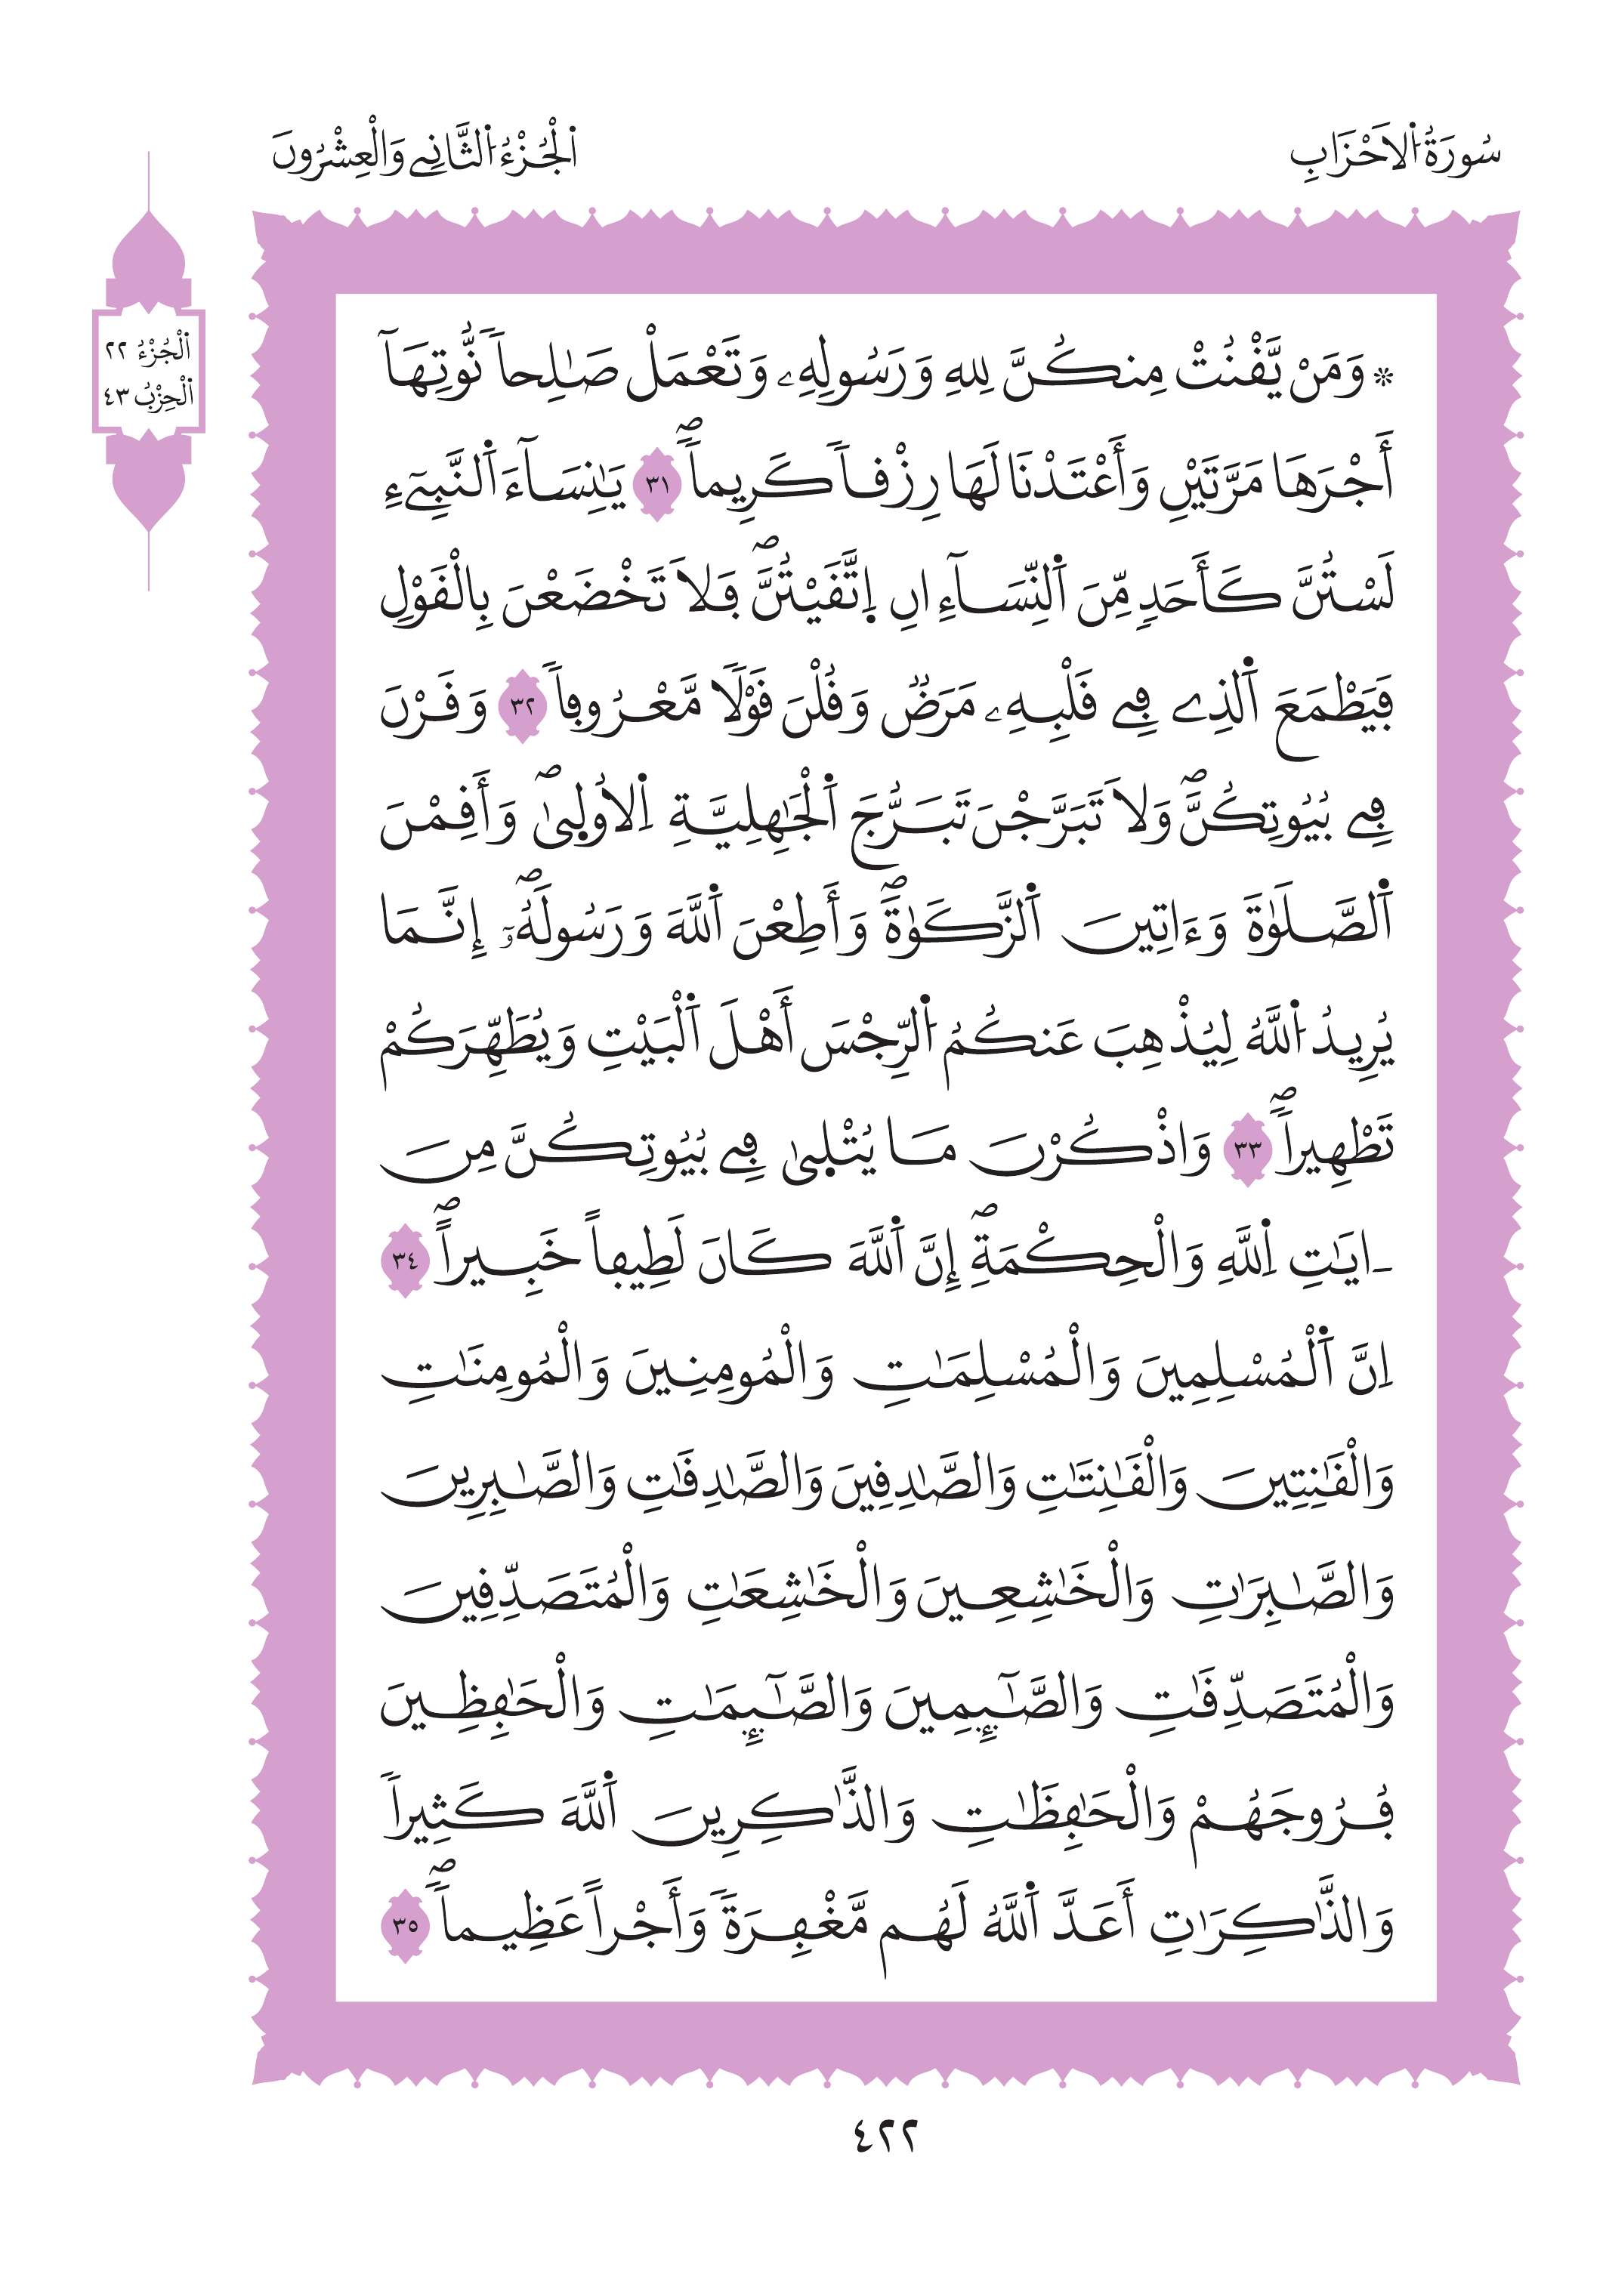 سُورَةُ اُ۬لَاحْزَابِ
اَ۬لْجُزْءُ اُ۬لثَّانِے وَالْعِشْرُونَ
اَ۬لْجُزْءُ ٢٢
اَ۬لْحِزْبُ ٤٣
* وَمَنْ يَّقْنُتْ مِنكُنَّ لِلهِ وَرَسُولِهِۦ وَتَعْمَلْ صَٰلِحاٗ نُّوتِهَآ
أَجْرَهَا مَرَّتَيْنِ وَأَعْتَدْنَا لَهَا رِزْقاٗ كَرِيماٗۖ ٣١ يَٰنِسَآءَ اَ۬لنَّبِےٓءِ
لَسْتُنَّ كَأَحَدٖ مِّنَ اَ۬لنِّسَآءِ اِنِ إِتَّقَيْتُنَّۖ فَلَا تَخْضَعْنَ بِالْقَوْلِ
فَيَطْمَعَ اَ۬لذِے فِے قَلْبِهِۦ مَرَضٞ وَقُلْنَ قَوْلاٗ مَّعْرُوفاٗ ٣٢ وَقَرْنَ
فِے بُيُوتِكُنَّۖ وَلَا تَبَرَّجْنَ تَبَرُّجَ اَ۬لْجَٰهِلِيَّةِ اِ۬لُاول۪ىٰۖ وَأَقِمْنَ
اَ۬لصَّلَوٰةَ وَءَاتِينَ اَ۬لزَّكَوٰةَۖ وَأَطِعْنَ اَ۬للَّهَ وَرَسُولَهُۥٓۖ إِنَّمَا
يُرِيدُ اُ۬للَّهُ لِيُذْهِبَ عَنكُمُ اُ۬لرِّجْسَ أَهْلَ اَ۬لْبَيْتِ وَيُطَهِّرَكُمْ
تَطْهِيراٗۖ ٣٣ وَاذْكُرْنَ مَا يُتْل۪ىٰ فِے بُيُوتِكُنَّ مِنَ
ـ ايَٰتِ اِ۬للَّهِ وَالْحِكْمَةِۖ إِنَّ اَ۬للَّهَ كَانَ لَطِيفاً خَبِيراًۖ ٣٤
اِنَّ اَ۬لْمُسْلِمِينَ وَالْمُسْلِمَٰتِ وَالْمُومِنِينَ وَالْمُومِنَٰتِ
وَالْقَٰنِتِينَ وَالْقَٰنِتَٰتِ وَالصَّٰدِقِينَ وَالصَّٰدِقَٰتِ وَالصَّٰبِرِينَ
وَالصَّٰبِرَٰتِ وَالْخَٰشِعِينَ وَالْخَٰشِعَٰتِ وَالْمُتَصَدِّقِينَ
وَالْمُتَصَدِّقَٰتِ وَالصَّٰٓئِمِينَ وَالصَّٰٓئِمَٰتِ وَالْحَٰفِظِينَ
فُرُوجَهُمْ وَالْحَٰفِظَٰتِ وَالذَّٰكِرِينَ اَ۬للَّهَ كَثِيراٗ
وَالذَّٰكِرَٰتِ أَعَدَّ اَ۬للَّهُ لَهُم مَّغْفِرَةٗ وَأَجْراً عَظِيماٗۖ ٣٥
٤٢٢